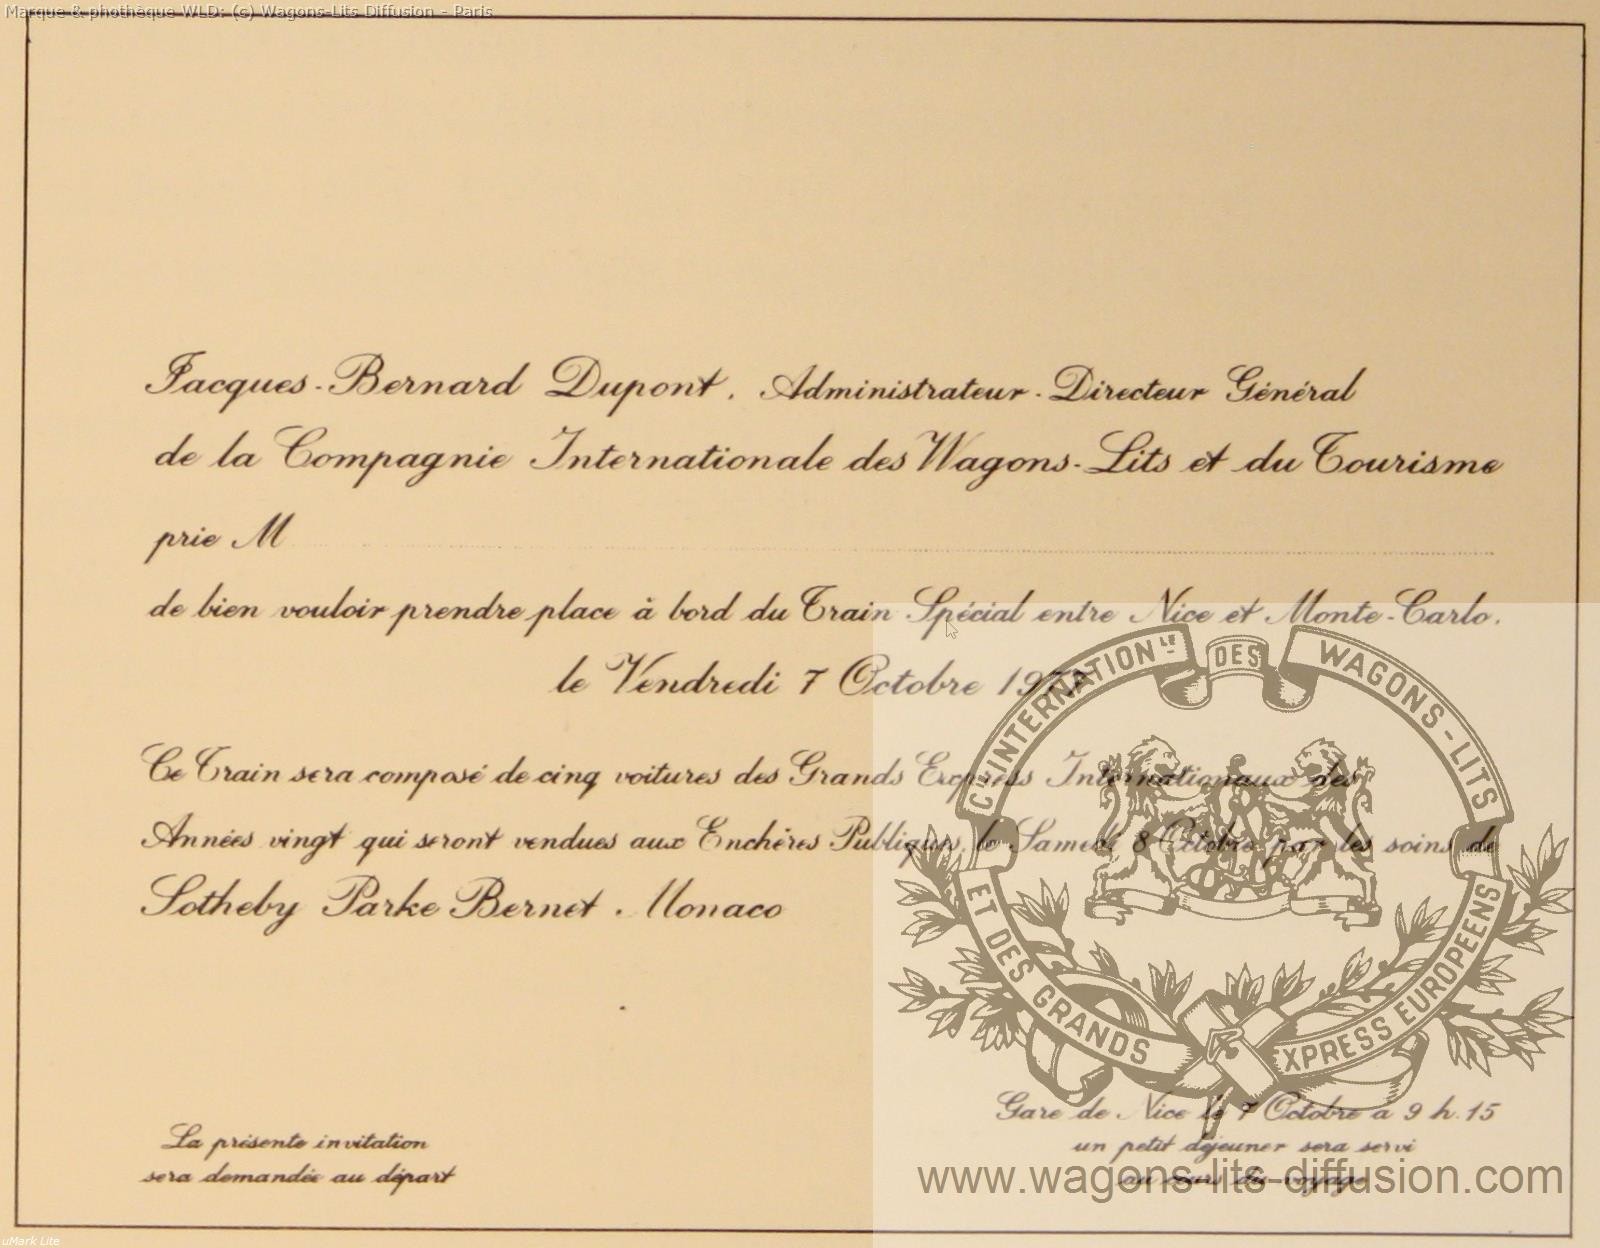 Marque & phothèque WLD: (c) Wagons-Lits Diffusion - Paris
Jacques-Bernard Dupont, Administrateur-Directeur Général
de la Compagnie Internationale des Wagons-Lits et du Tourisme
prie M
de bien vouloir prendre place à bord du Train Spécial entre Nice et Monte-Carlo.
le Vendredi 7 Octobre 1977
Ce Train sera composé de cinq voitures des Grands Express Internationaux des
Années vingt qui seront vendues aux Enchères Publiques, le Samedi 8 Octobre par les soins de
Sotheby Parke Bernet. Monaco
CIE INTERNATIONLE DES WAGONS-LITS
ET DES GRANDS EXPRESS EUROPEENS
Gare de Nice le 7 Octobre a 9 h.15
un petit dejeuner sera servi
au cours du voyage
La présente invitation
sera demandée au départ
www.wagons-lits-diffusion.com
uMark Lite